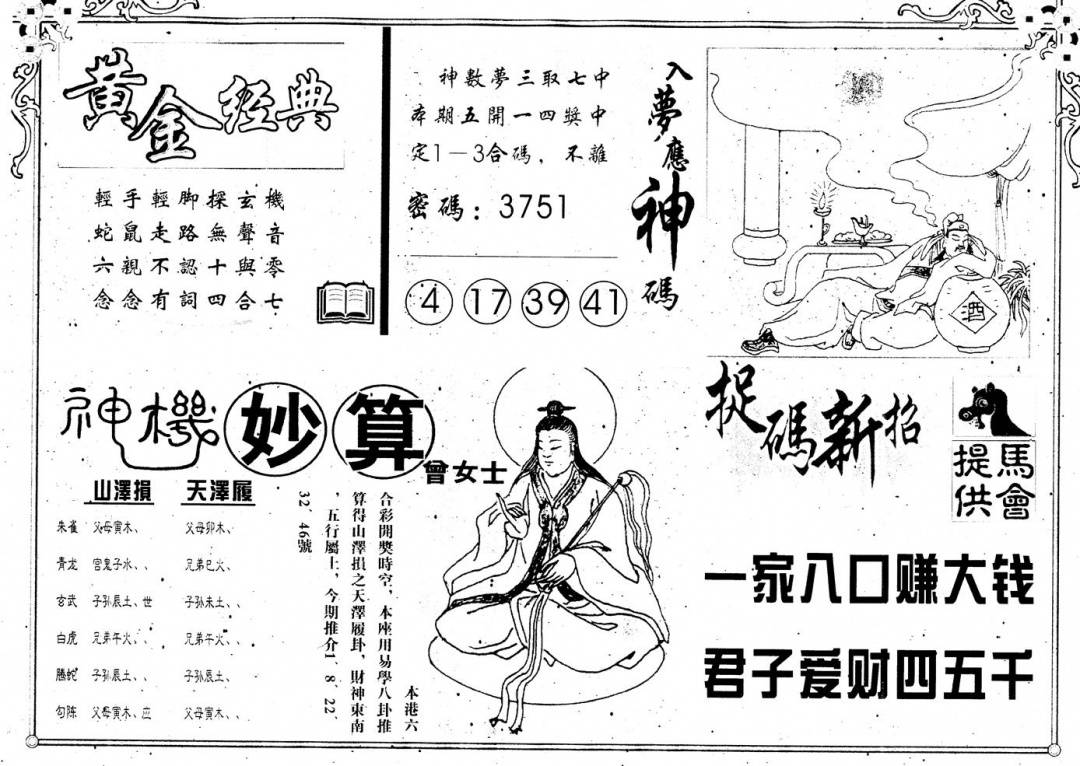 黃金經典
輕手輕脚探玄機
蛇鼠走路無聲音
六親不認十與零
念念有詞四合七
神數夢三取七中
本期五開一四獎中
定1－3合碼，不離
密碼：3751
4 17 39 41
入夢應神碼
酒
神機妙算
曾女士
山澤損 天澤履
朱雀 父母寅木、 父母卯木、
青龙 官鬼子水、、 兄弟巳火、
玄武 子孙辰土、世 子孙未土、、
白虎 兄弟午火、、 兄弟午火、、
螣蛇 子孙辰土、、 子孙辰土、
勾陈 父母寅木、应 父母寅木、、
本港六
合彩開獎時空，本座用易學八卦推
算得山澤損之天澤履卦，財神東南
，五行屬土，今期推介1、8、22、
32、46號
捉碼新招
馬會
提供
一家入口赚大钱
君子爱财四五千